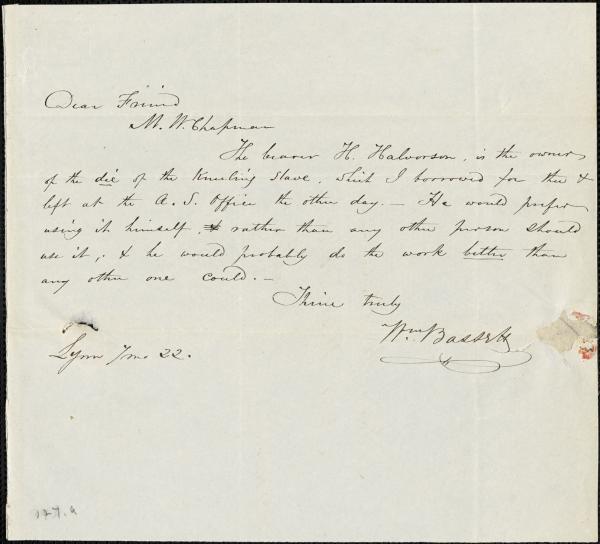 Dear Friend
M. W. Chapman
The bearer H. Halvorson, is the owner
of the die of the Kneeling Slave, which I borrowed for thee &
left at the A. S. Office the other day. — He would prefer
using it himself, rather than any other person should
use it, & he would probably do the work better than
any other one could. —
Thine truly
Wm. Bassett
Lynn 7mo 22.